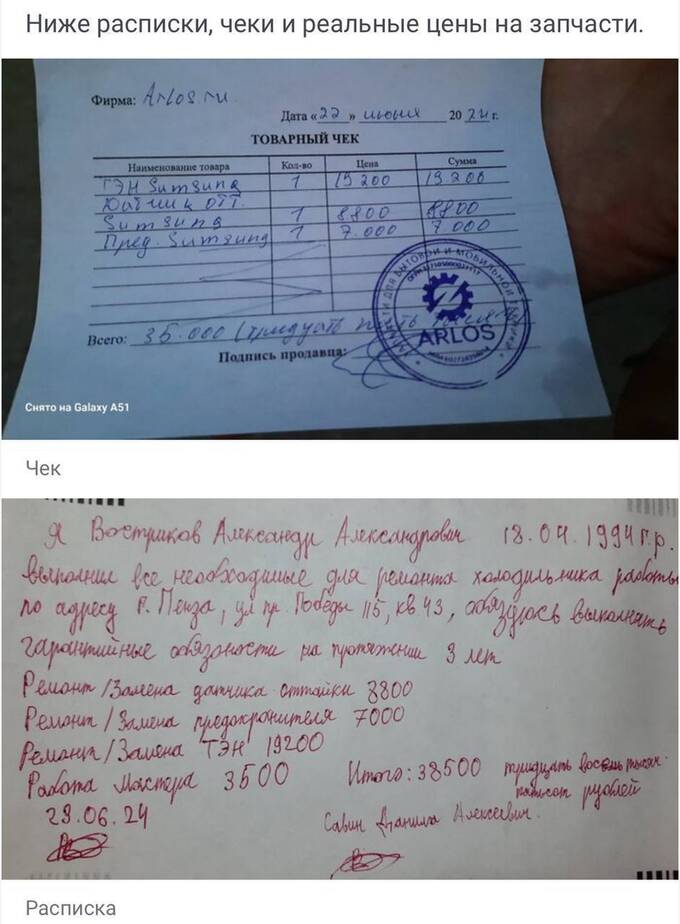 Ниже расписки, чеки и реальные цены на запчасти.
Фирма: Arlos.ru
Дата «22» июня 2024 г.
ТОВАРНЫЙ ЧЕК
Наименование товара Кол-во Цена Сумма
ТЭН Sumsung 1 19200 19.200
Датчик отт.
Sumsung 1 8800 8800
Пред. Sumsung 1 7.000 7000
Всего: 35.000 (тридцать пять
Подпись продавца:
ARLOS
Снято на Galaxy A51
Чек
Я Востриков Александр Александрович 18.04.1994г.р.
выполнил все необходимые для ремонта холодильника работы
по адресу г. Пенза, ул пр. Победы 115, кв 43, обязуюсь выполнять
гарантийные обязоности на протяжении 3 лет
Ремонт/Замена датчика оттайки 8800
Ремонт/Замена предохронителя 7000
Ремонт/Замена ТЭН 19200
Работа мастера 3500 Итого: 38500 тридцать восемь тысяч
пятьсот рублей
29.06.24 Савин Данила Алексеевич.
Расписка